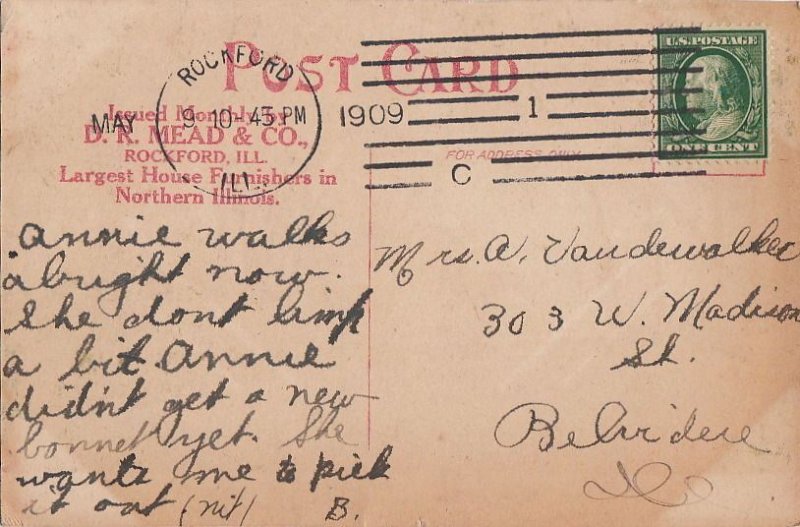 POST CARD
ROCKFORD
MAY 9 10-45 PM 1909
ILL.
1
C
U.S. POSTAGE
ONE CENT
Issued Monthly by
D. R. MEAD & CO.,
ROCKFORD, ILL.
Largest House Furnishers in
Northern Illinois.
FOR ADDRESS ONLY
Annie walks
alright now.
She dont limp
a bit Annie
didn't get a new
bonnet yet. She
wants me to pick
it out (nit) B.
Mrs. A. Vandewalker
303 W. Madison
St.
Belvidere
Ills